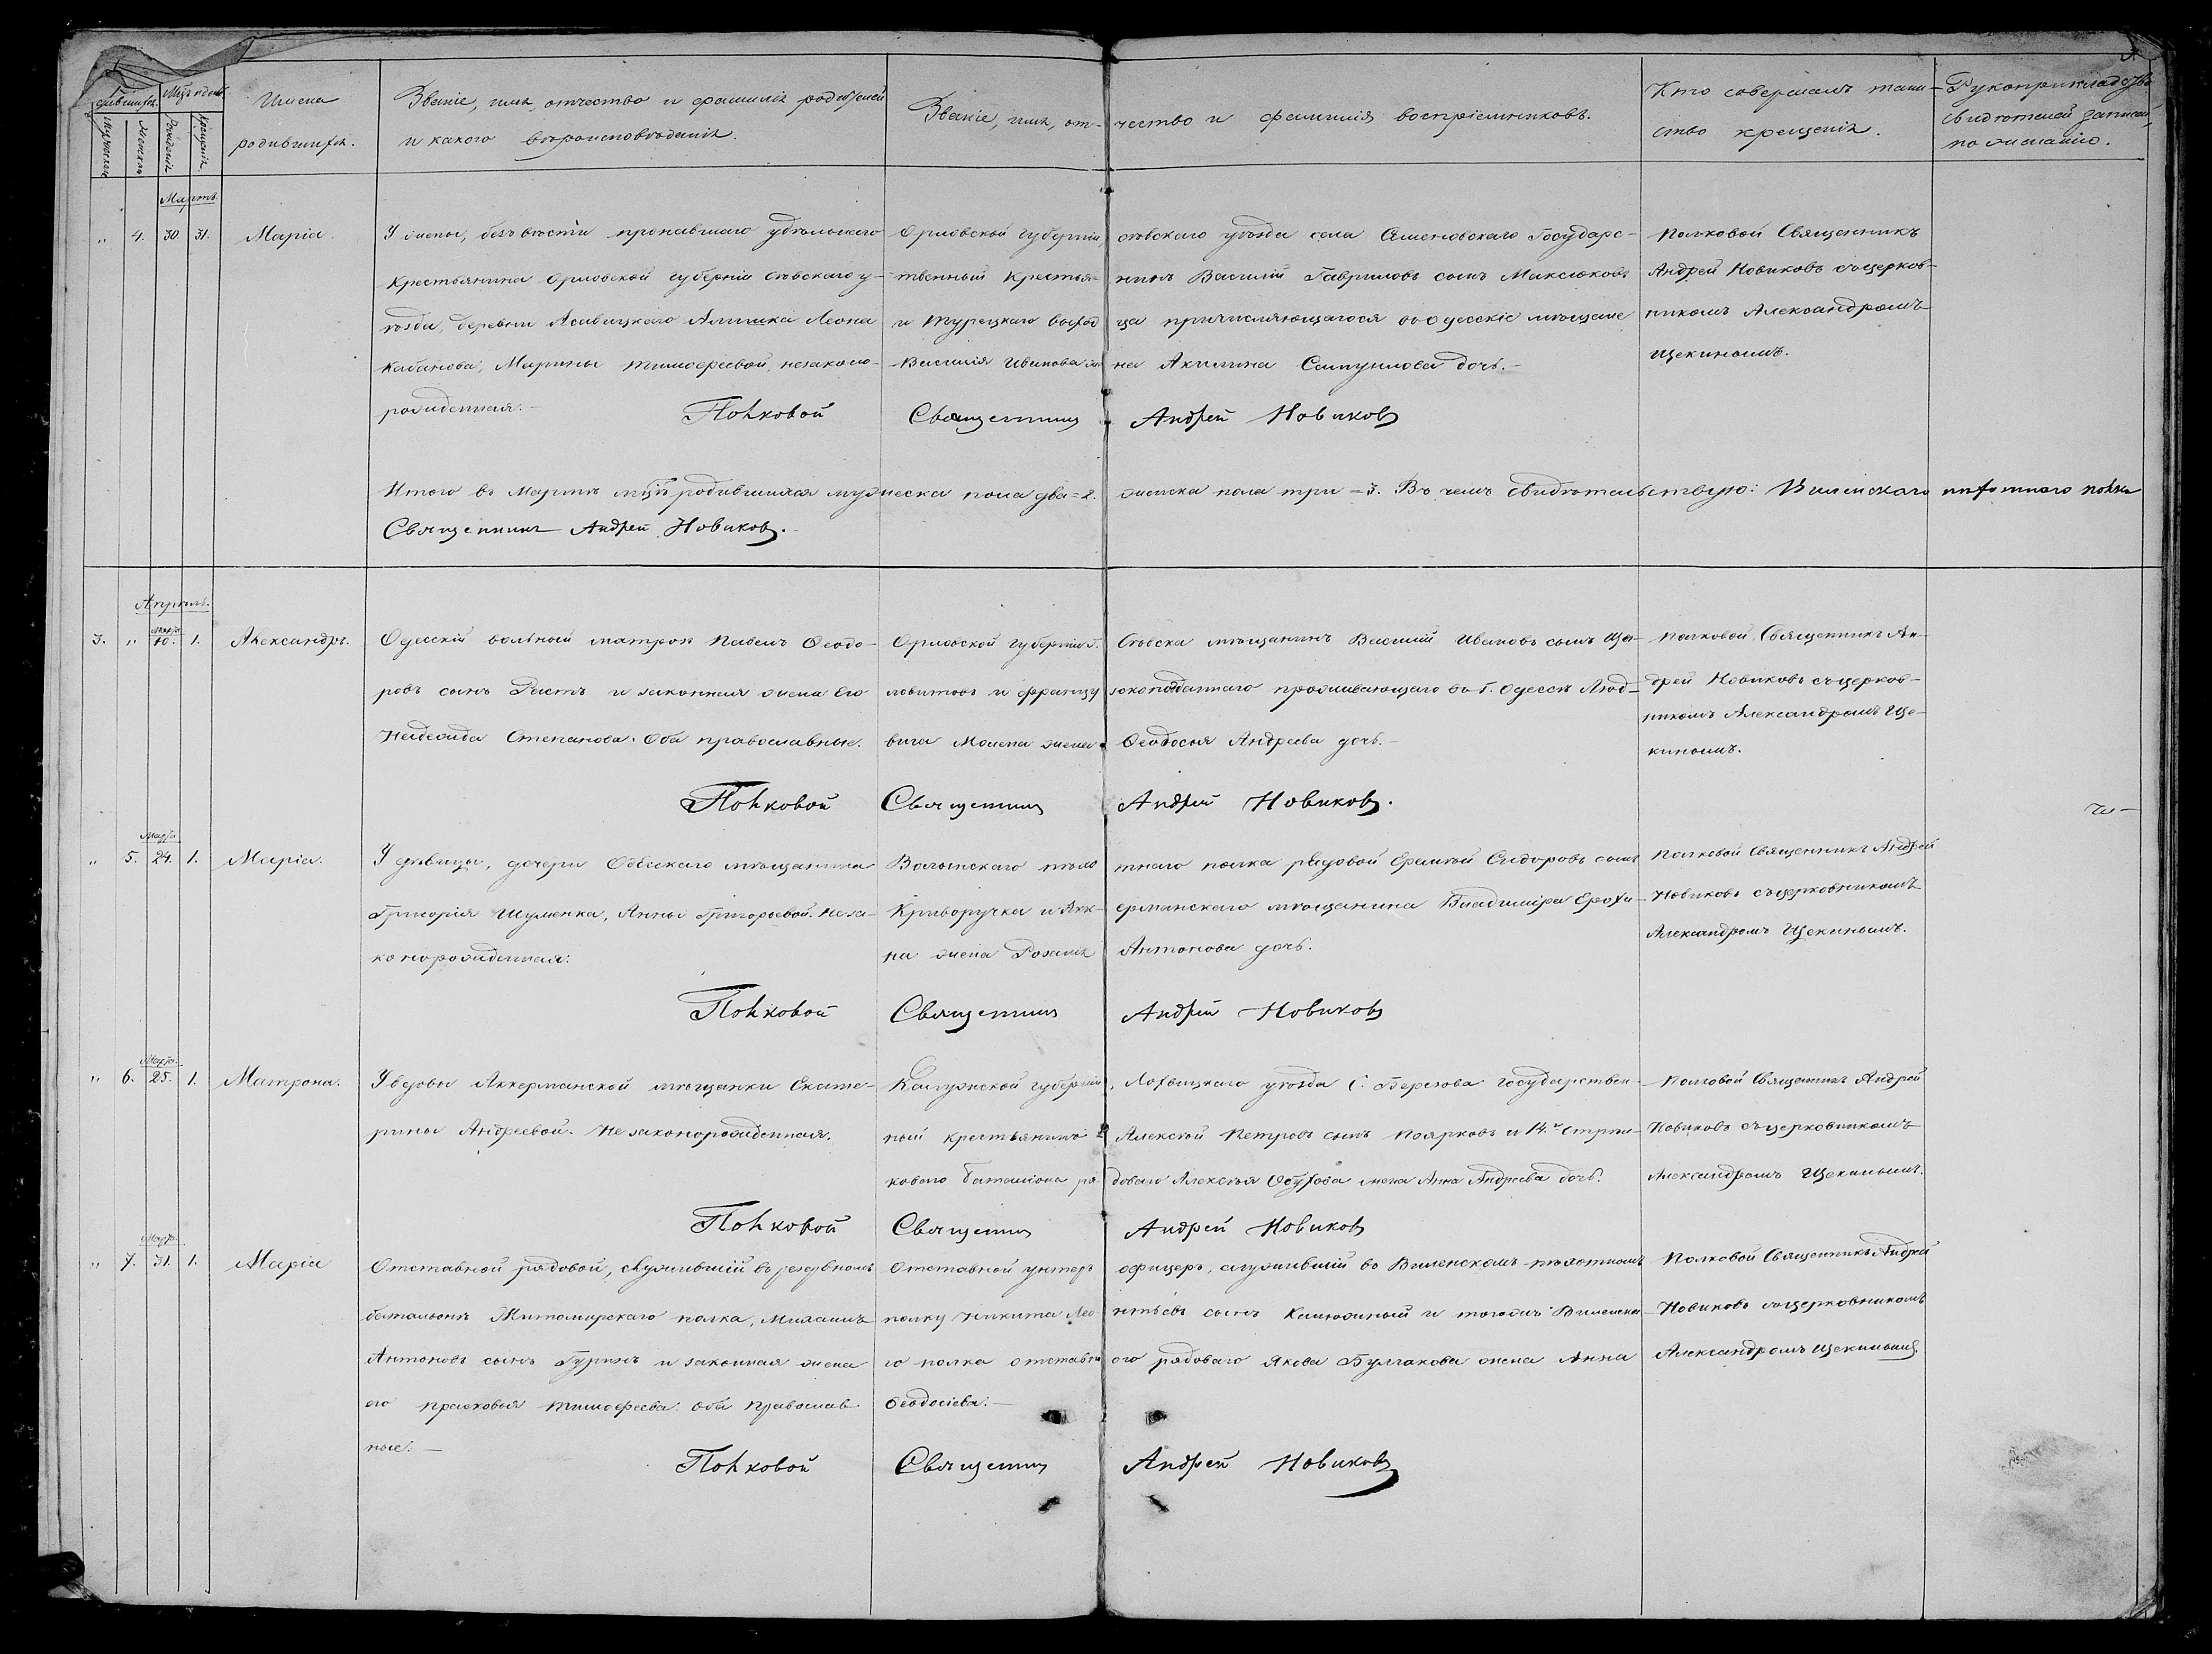 Счетъ родившихся. Мѣц. и день
Мужескаго Женскаго Рожденія Крещенія
Имена родившихся.
Званіе, имя, отчество и фамилія родителей
и какого вѣроисповѣданія.
Званіе, имя, отчество и фамилія воспріемниковъ.
Кто совершалъ таинство крещенія.
Рукоприкладство
свидѣтелей записи
по желанію.
Мартъ
„ 4. 30. 31. Марія.
У жены, безъ вѣсти пропавшаго удѣльнаго
крестьянина Орловской губерніи Сѣвскаго у-
ѣзда, деревни Леона
Кабанова, Марины Тимофеевой, незаконо-
рожденная.–
Орловской губерніи Сѣвскаго уѣзда села Семеновскаго Государс-
твенный крестьянинъ Василій Гавриловъ сынъ Максюковъ
и Турецкаго выходца причисляющагося въ Одесскіе мѣщане
Василія Иванова жена Акилина дочь.–
Полковой Священникъ
Андрей Новиковъ съ церков-
никомъ Александромъ
Щекинымъ.
Полковой Священникъ Андрей Новиковъ
Итого въ Мартѣ мцѣ родившихся мужеска пола два = 2. женска пола три – 3. Въ чемъ свидѣтельствую: Виленскаго пѣхотнаго полка
Священникъ Андрей Новиковъ.
Апрѣль.
3. „ Марта 10. 1. Александръ.
Одесскій вольный матросъ Павелъ Ѳеодо-
ровъ сынъ Ростъ и законная жена его
Надежда Степанова. Оба православные.
Орловской губерніи г. Сѣвска мѣщанинъ Василій Ивановъ сынъ
и французскоподданнаго проживающаго въ г. Одессѣ Люд-
вига жена Ѳеодосья Андреева дочь.–
Полковой Священникъ Ан-
дрей Новиковъ съ церков-
никомъ Александромъ Ще-
кинымъ.
Полковой Священникъ Андрей Новиковъ.
„ 5. Марта 24. 1. Марія.
У дѣвицы, дочери Одесскаго мѣщанина
Григорія Шуменка, Анны Григорьевой. Неза-
конорожденная.
Волынскаго пѣхотнаго полка рядовой Еремѣй Сидоровъ сынъ
Криворучка и Аккерманскаго мѣщанина Владиміра Ерохи-
на жена Розалія Антонова дочь.
Полковой Священникъ Андрей
Новиковъ съ церковникомъ
Александромъ Щекинымъ.
Полковой Священникъ Андрей Новиковъ
„ 6. Марта 25. 1. Матрона.
У вдовы Аккерманской мѣщанки Екате-
рины Андреевой. Незаконорожденная.
Калужской губерніи, Лохвицкаго уѣзда С. Березова Государствен-
ный крестьянинъ Алексѣй Петровъ сынъ Поярковъ и 14.го Стрѣл-
коваго баталіона рядоваго Алексѣя Обухова жена Анна Андреева дочь.
Полковой Священникъ Андрей
Новиковъ съ церковникомъ
Александромъ Щекинымъ.
Полковой Священникъ Андрей Новиковъ
„ 7. Марта 31. 1. Марія
Отставной рядовой, служившій въ резервномъ
батальонѣ Житомирскаго полка, Михаилъ
Антоновъ сынъ Гуринъ и законная жена
его Прасковья Тимофеева. Оба православ-
ные.–
Отставной унтеръ офицеръ, служившій въ Виленскомъ пѣхотномъ
полку Никита Леонтьевъ сынъ Калюжный и тогожъ Виленска-
го полка отставного рядоваго Якова Булгакова жена Анна
Ѳеодосіева.–
Полковой Священникъ Андрей
Новиковъ съ церковникомъ
Александромъ Щекинымъ.
Полковой Священникъ Андрей Новиковъ